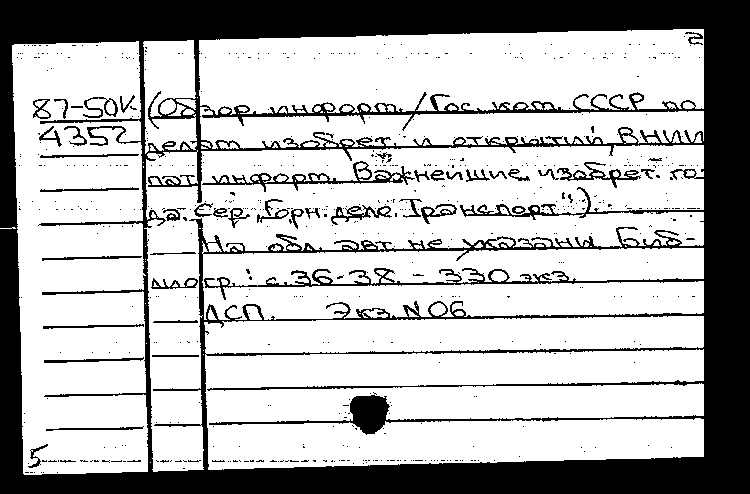 2
87-50К (Обзор. информ. / Гос. ком. СССР по
4352 делам изобрет. и открытий, ВНИИ
пат. информ. Важнейшие изобрет. го-
да. Сер. "Горн. дело. Транспорт").
На обл. авт. не указаны. Биб-
лиогр.: с. 36-38. - 330 экз.
ДСП. Экз. N 06
5